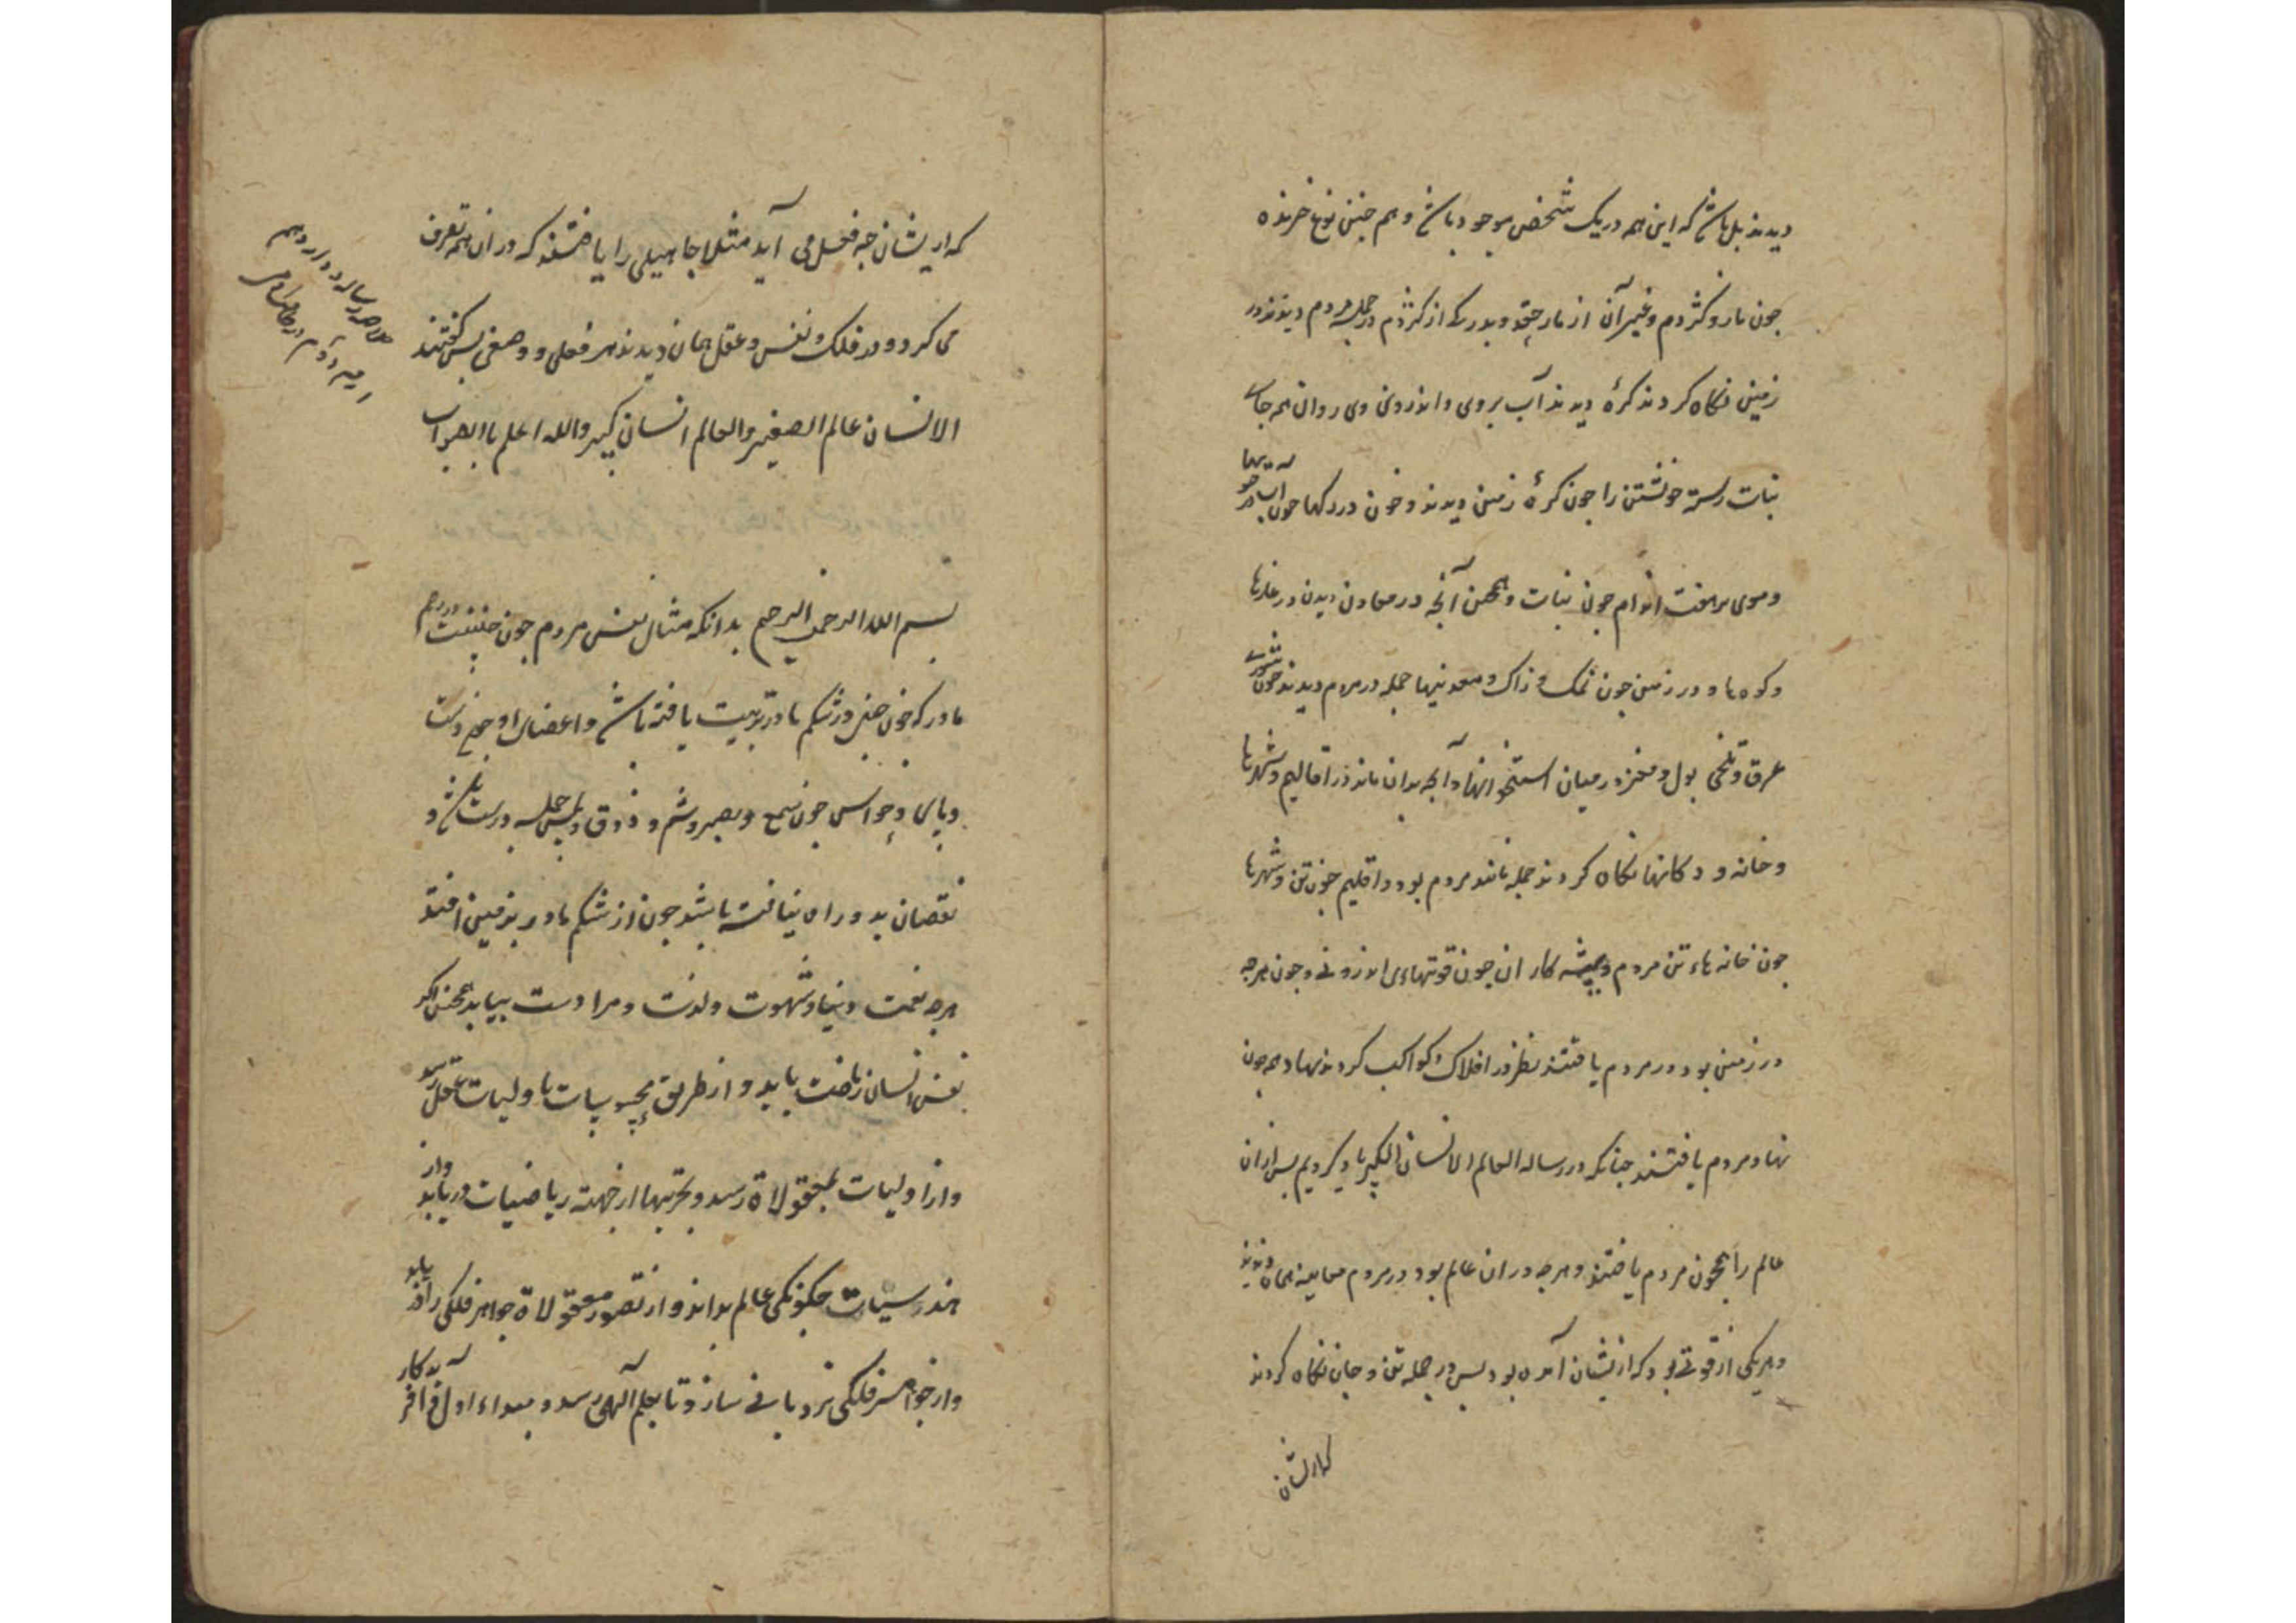 دیدند بل باش که این همه در یک شخص موجود باش و هم چنین نوع خزنده
چون مار و کژدم و غیر آن از مار حقد و بدرکی از کژدم در جمله مردم دیدند در
زمین نکاه کردند کرهٔ دیدند آب بروی و اندرون وی روان همه جای
نبات رسته خویشتن را جون کرهٔ زمین دیدند و خون در رکها جون آب در جویها
و موی بر هفت اندام جون نبات و همچنین آنچه در معادن دیدن در غارها
و کوه ها و در زمین جون نمک و زاک و معدنیها جمله در مردم دیدند جون شوری
عرق و تلخی بول و مغز در میان استخوانها و آنچه بدان ماند در اقالیم و شهرها
و خانه و دکانها نکاه کردند جمله مانند مردم بود و اقلیم جون تن و شهرها
جون خانه هاء تن مردم و پیشه کاران جون قوتهاءی اندرونی و جون هرچه
در زمین بود در مردم یافتند نظر در افلاک و کواکب کردند نهاد همجون
نهاد مردم یافتند جنانکه در رساله العالم الانسان الکبیر یاد کردیم بس از ان
عالم را همچون مردم یافتند و هرچه در ان عالم بود در مردم معاینه همان دیدند
و هر یکی از قوتی بود که از یشان آمده بود بس در جمله تن و جان نکاه کردند
که از یشان
که از یشان چه فعل می آید مثلا جاهیلی را یافتند که در ان همه تصرف
می کرد و در فلک و نفس و عقل همان دیدند هر فعلی و وصفی بس کفتند
الانسان عالم الصغیر والعالم انسان کبیر والله اعلم باالصواب
بسم الله الرحمن الرحیم بدانکه مثال نفس مردم جون جنینیست در رحم
مادر که جون جنین در شکم مادر تربیت یافته باش و اعضای او جون دست
و پای و حواس جون سمع و بصر و شم و ذوق و لمس جمله درست باش و
نقصان بدو راه نیافته باشد جون از شکم مادر بزمین افتد
هرچه نعمت دنیا و شهوت و لذت و مرادست بیابد همچنین اکر
نفس انسان ریاضت یابد و از طریق محسوسات باولیات عقل رسد
و از اولیات بمعقولاة رسد و بحرتبها از جهته ریاضیات دریابد و از
هندسیات چکونکی عالم بداند و از تصور معقولاة جواهر فلکی را در یابد
و از جواهر فلکی نردبانی سازد تا بعلم آلهی رسد و بمبداء اول و آخر آید کار